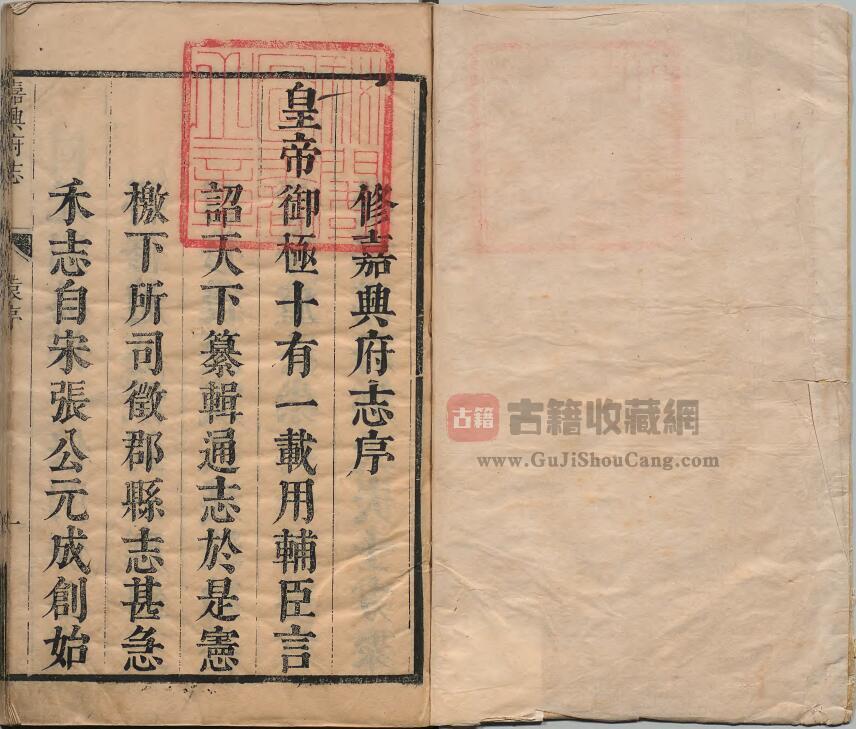 修嘉興府志序
皇帝御極十有一載用輔臣言
詔天下纂輯通志於是憲
檄下所司徵郡縣志甚急
禾志自宋張公元成創始
嘉興府志
袁序
一
古籍
古籍收藏網
www.GuJiShouCang.com